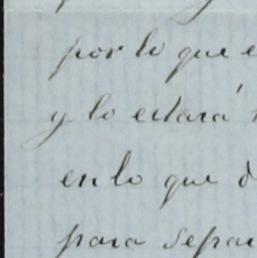 por lo que
y lo estará
en lo que
para